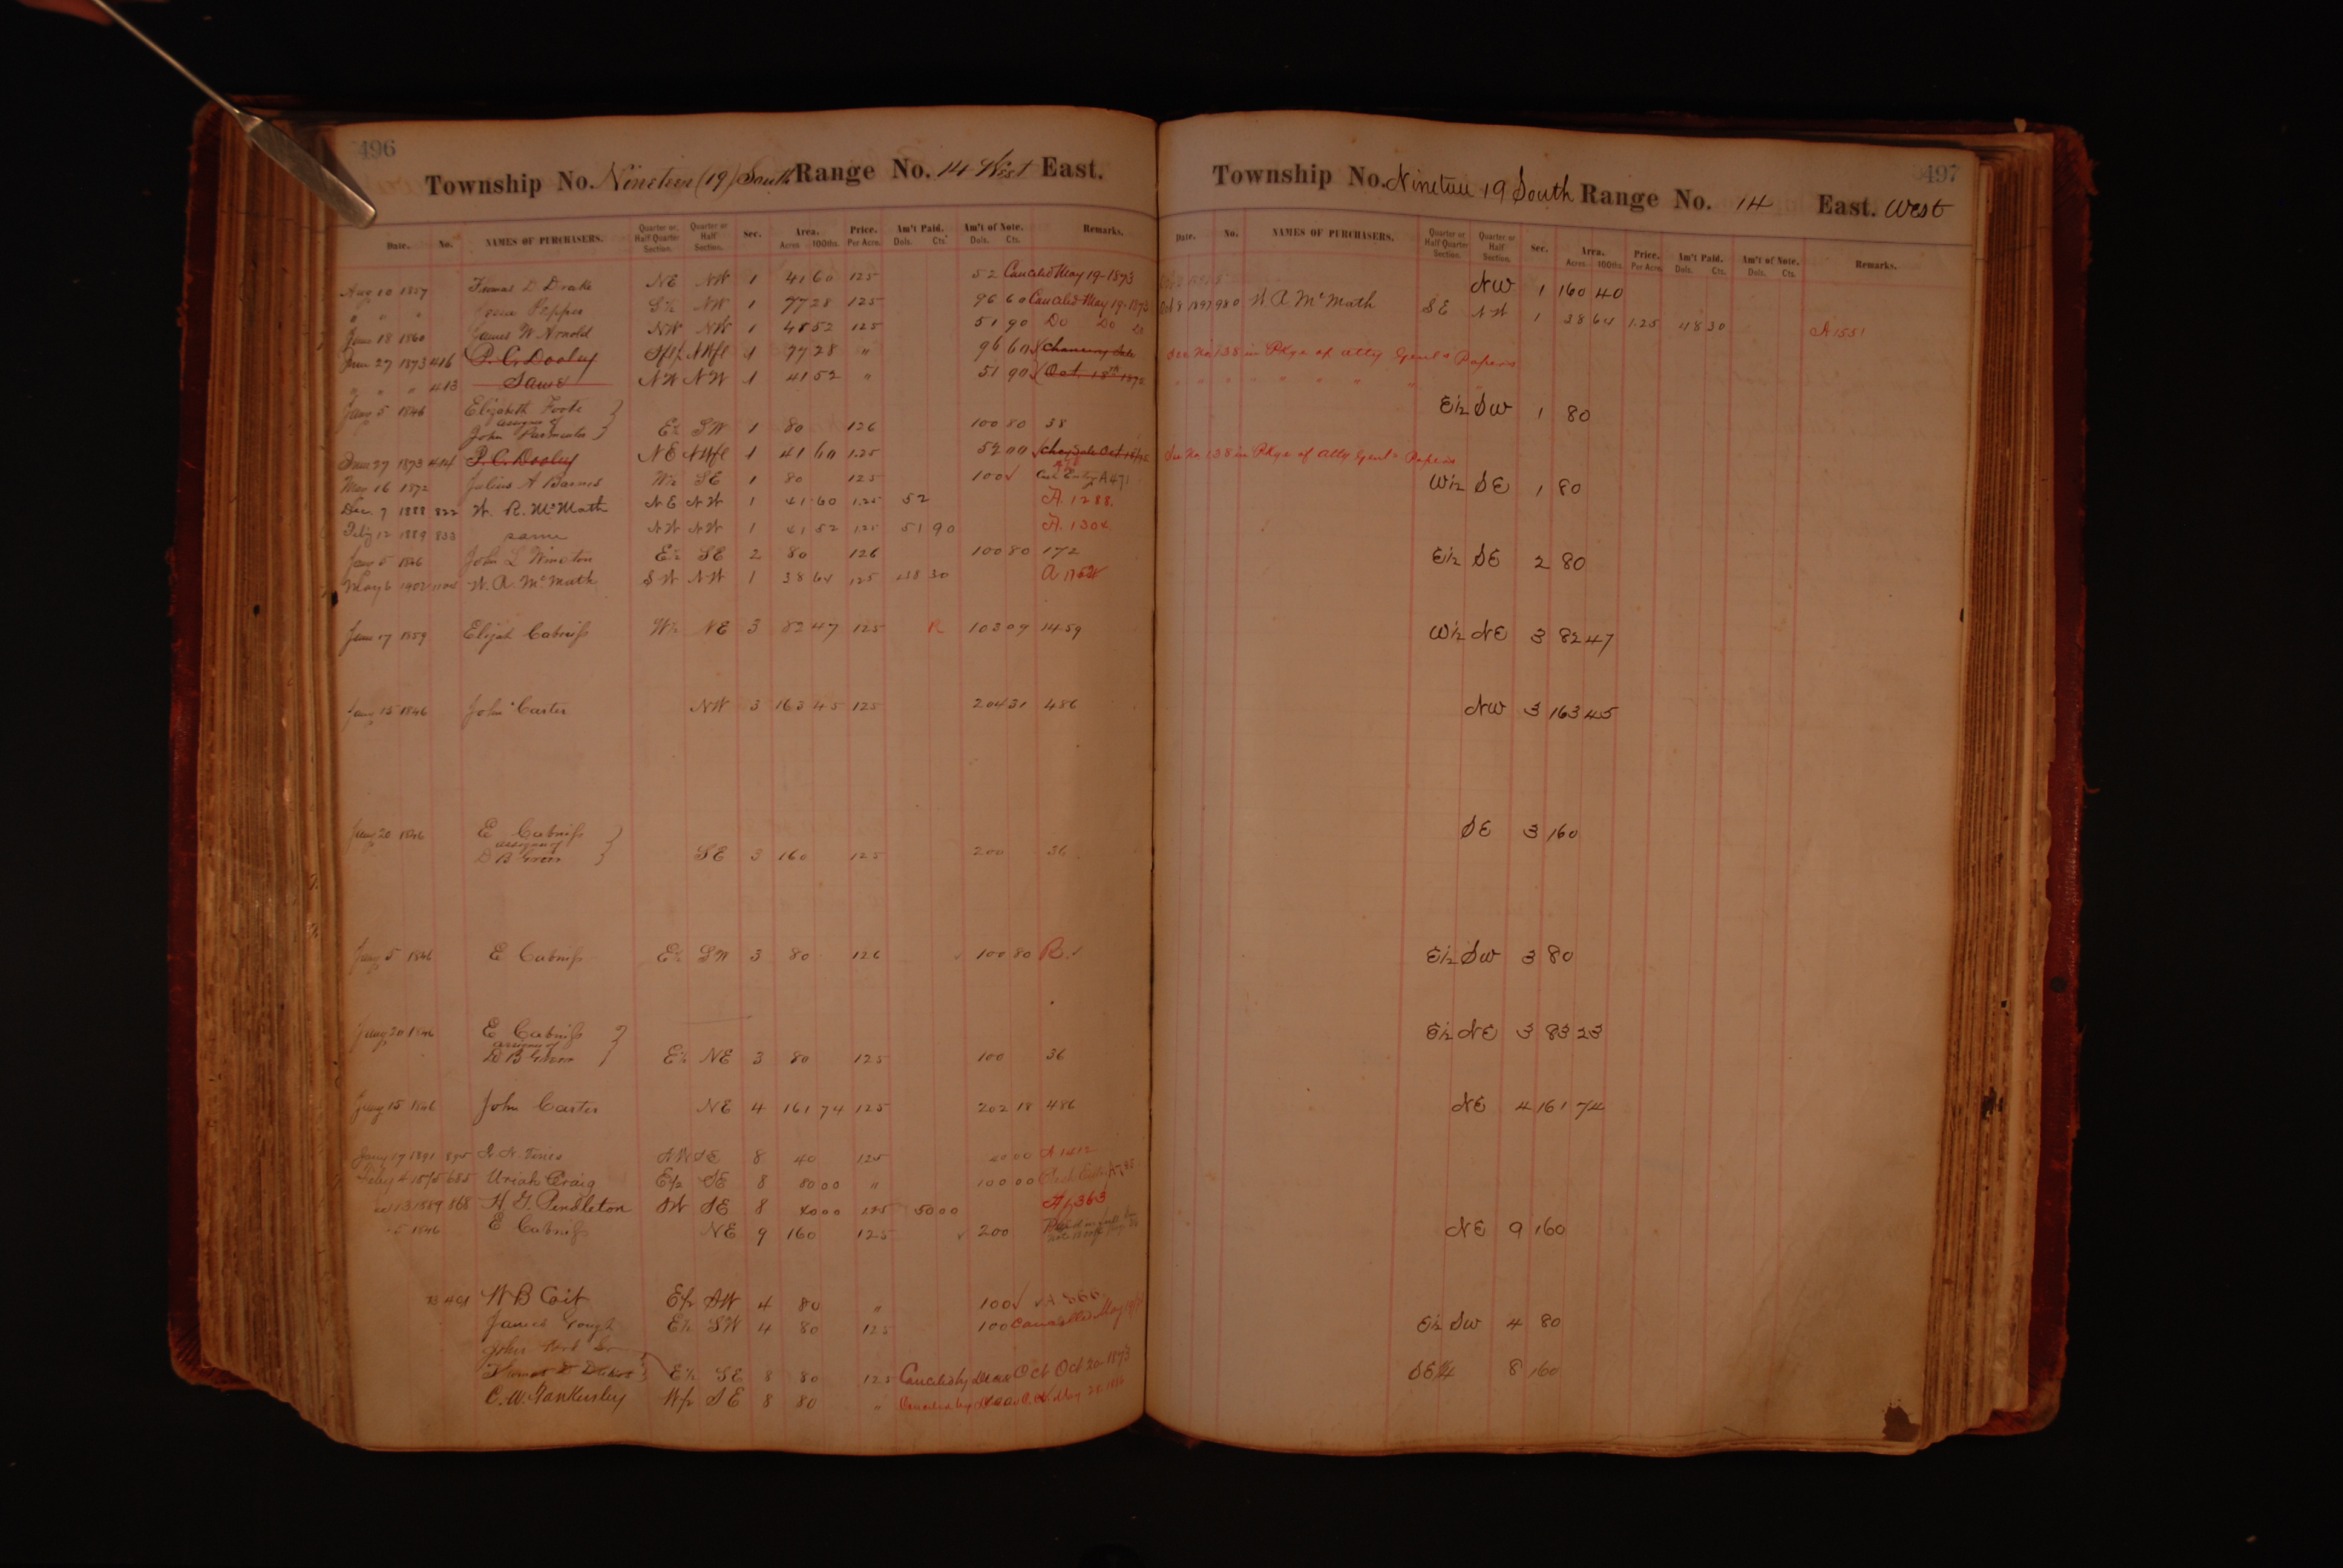 496
Township No. Nineteen (19) South Range No. 14 West East.
Date. No. NAMES OF PURCHASERS. Quarter or Half Quarter Section. Quarter or Half Section. Sec. Area. Acres 100ths. Price. Per Acre. Am't Paid. Dols. Cts. Am't of Note. Dols. Cts. Remarks.
Aug 10 1857 Thomas D Drake NE NW 1 41 60 125 52 Canceled May 19-1873
" " " Pepper S½ NW 1 77 28 125 96 60 Canceled May 19-1873
June 18 1860 James W Arnold NW NW 1 41 52 125 51 90 Do Do
June 27 1873 416 P. C. Dooley S½ NWfl 1 77 28 " 96 60 Chancery Sale
" " " 413 Same NW NW 1 41 52 " 51 90 Oct. 18th 1872
Jany 5 1846 Elizabeth Foote
assignee of
John E½ SW 1 80 126 100 80 38
June 27 1873 414 P. C. Dooley NE NWfl 1 41 60 1.25 52 00 Chay Sale Oct 18/72
May 16 1872 Julius A Barnes W½ SE 1 80 125 100 Cash Entry A 471
Dec. 7 1888 822 W. R. McMath NE NW 1 41 60 1.25 52 A. 1288.
Feby 12 1889 833 same NW NW 1 41 52 125 51 90 A. 1304
Jany 5 1846 John L Winston E½ SE 2 80 126 100 80 172
May 6 1902 W. A. McMath SW NW 1 38 64 125 48 30
June 17 1859 Elijah Cabniss W½ NE 3 82 47 125 R 103 09 1459
Jany 15 1846 John Carter NW 3 163 45 125 204 31 486
Jany 20 1846 E Cabniss
assignee of
D B Green SE 3 160 125 200 36
Jany 5 1846 E Cabniss E½ SW 3 80 126 100 80 R.
Jany 20 1846 E Cabniss
assignee of
D B Green E½ NE 3 80 125 100 36
Jany 15 1846 John Carter NE 4 161 74 125 202 18 486
Jany 17 1891 895 NW SE 8 40 125 A 1412
Feby 4 1875 685 Uriah Craig E½ SE 8 80 00 " 100 00 Cash Entry A 785
13 1889 868 H. G. Pendleton SW SE 8 40 00 125 50 00 A 1363
5 1846 E Cabniss NE 9 160 125 200
401 W B Coit E½ SW 4 80 " 100 A 566
James Gough E½ SW 4 80 125 100 Cancelled May 19/73
John
Thomas D E½ SE 8 80 125 Canceled by Decree Oct Oct 20 1873
C. W. Hankersley W½ SE 8 80 " Canceled by Decree
497
Township No. Nineteen 19 South Range No. 14 East. West
Date. No. NAMES OF PURCHASERS. Quarter or Half Quarter Section. Quarter or Half Section. Sec. Area. Acres 100ths. Price. Per Acre. Am't Paid. Dols. Cts. Am't of Note. Dols. Cts. Remarks.
NW 1 160 40
Oct 8 1897 980 W A McMath SE NW 1 38 64 1.25 48 30 A 1551
See No 138 in Pkge of Atty Genl's Papers
" " " " " " " "
E½ SW 1 80
See No 138 in Pkge of Atty Genl's Papers
W½ SE 1 80
E½ SE 2 80
W½ NE 3 82 47
NW 3 163 45
SE 3 160
E½ SW 3 80
E½ NE 3 83 23
NE 4 161 74
NE 9 160
E½ SW 4 80
SE¼ 8 160